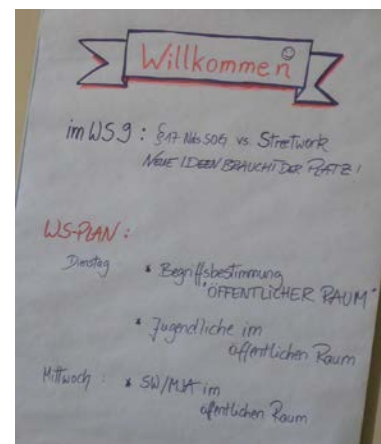 Willkommen
im WS 9 : §17 Nds SOG vs. Streetwork
NEUE IDEEN BRAUCHT DER PLATZ!
WS-PLAN :
Dienstag * Begriffsbestimmung
"ÖFFENTLICHER RAUM"
* Jugendliche im
öffentlichen Raum
Mittwoch : * SW/MJA im
öffentlichen Raum